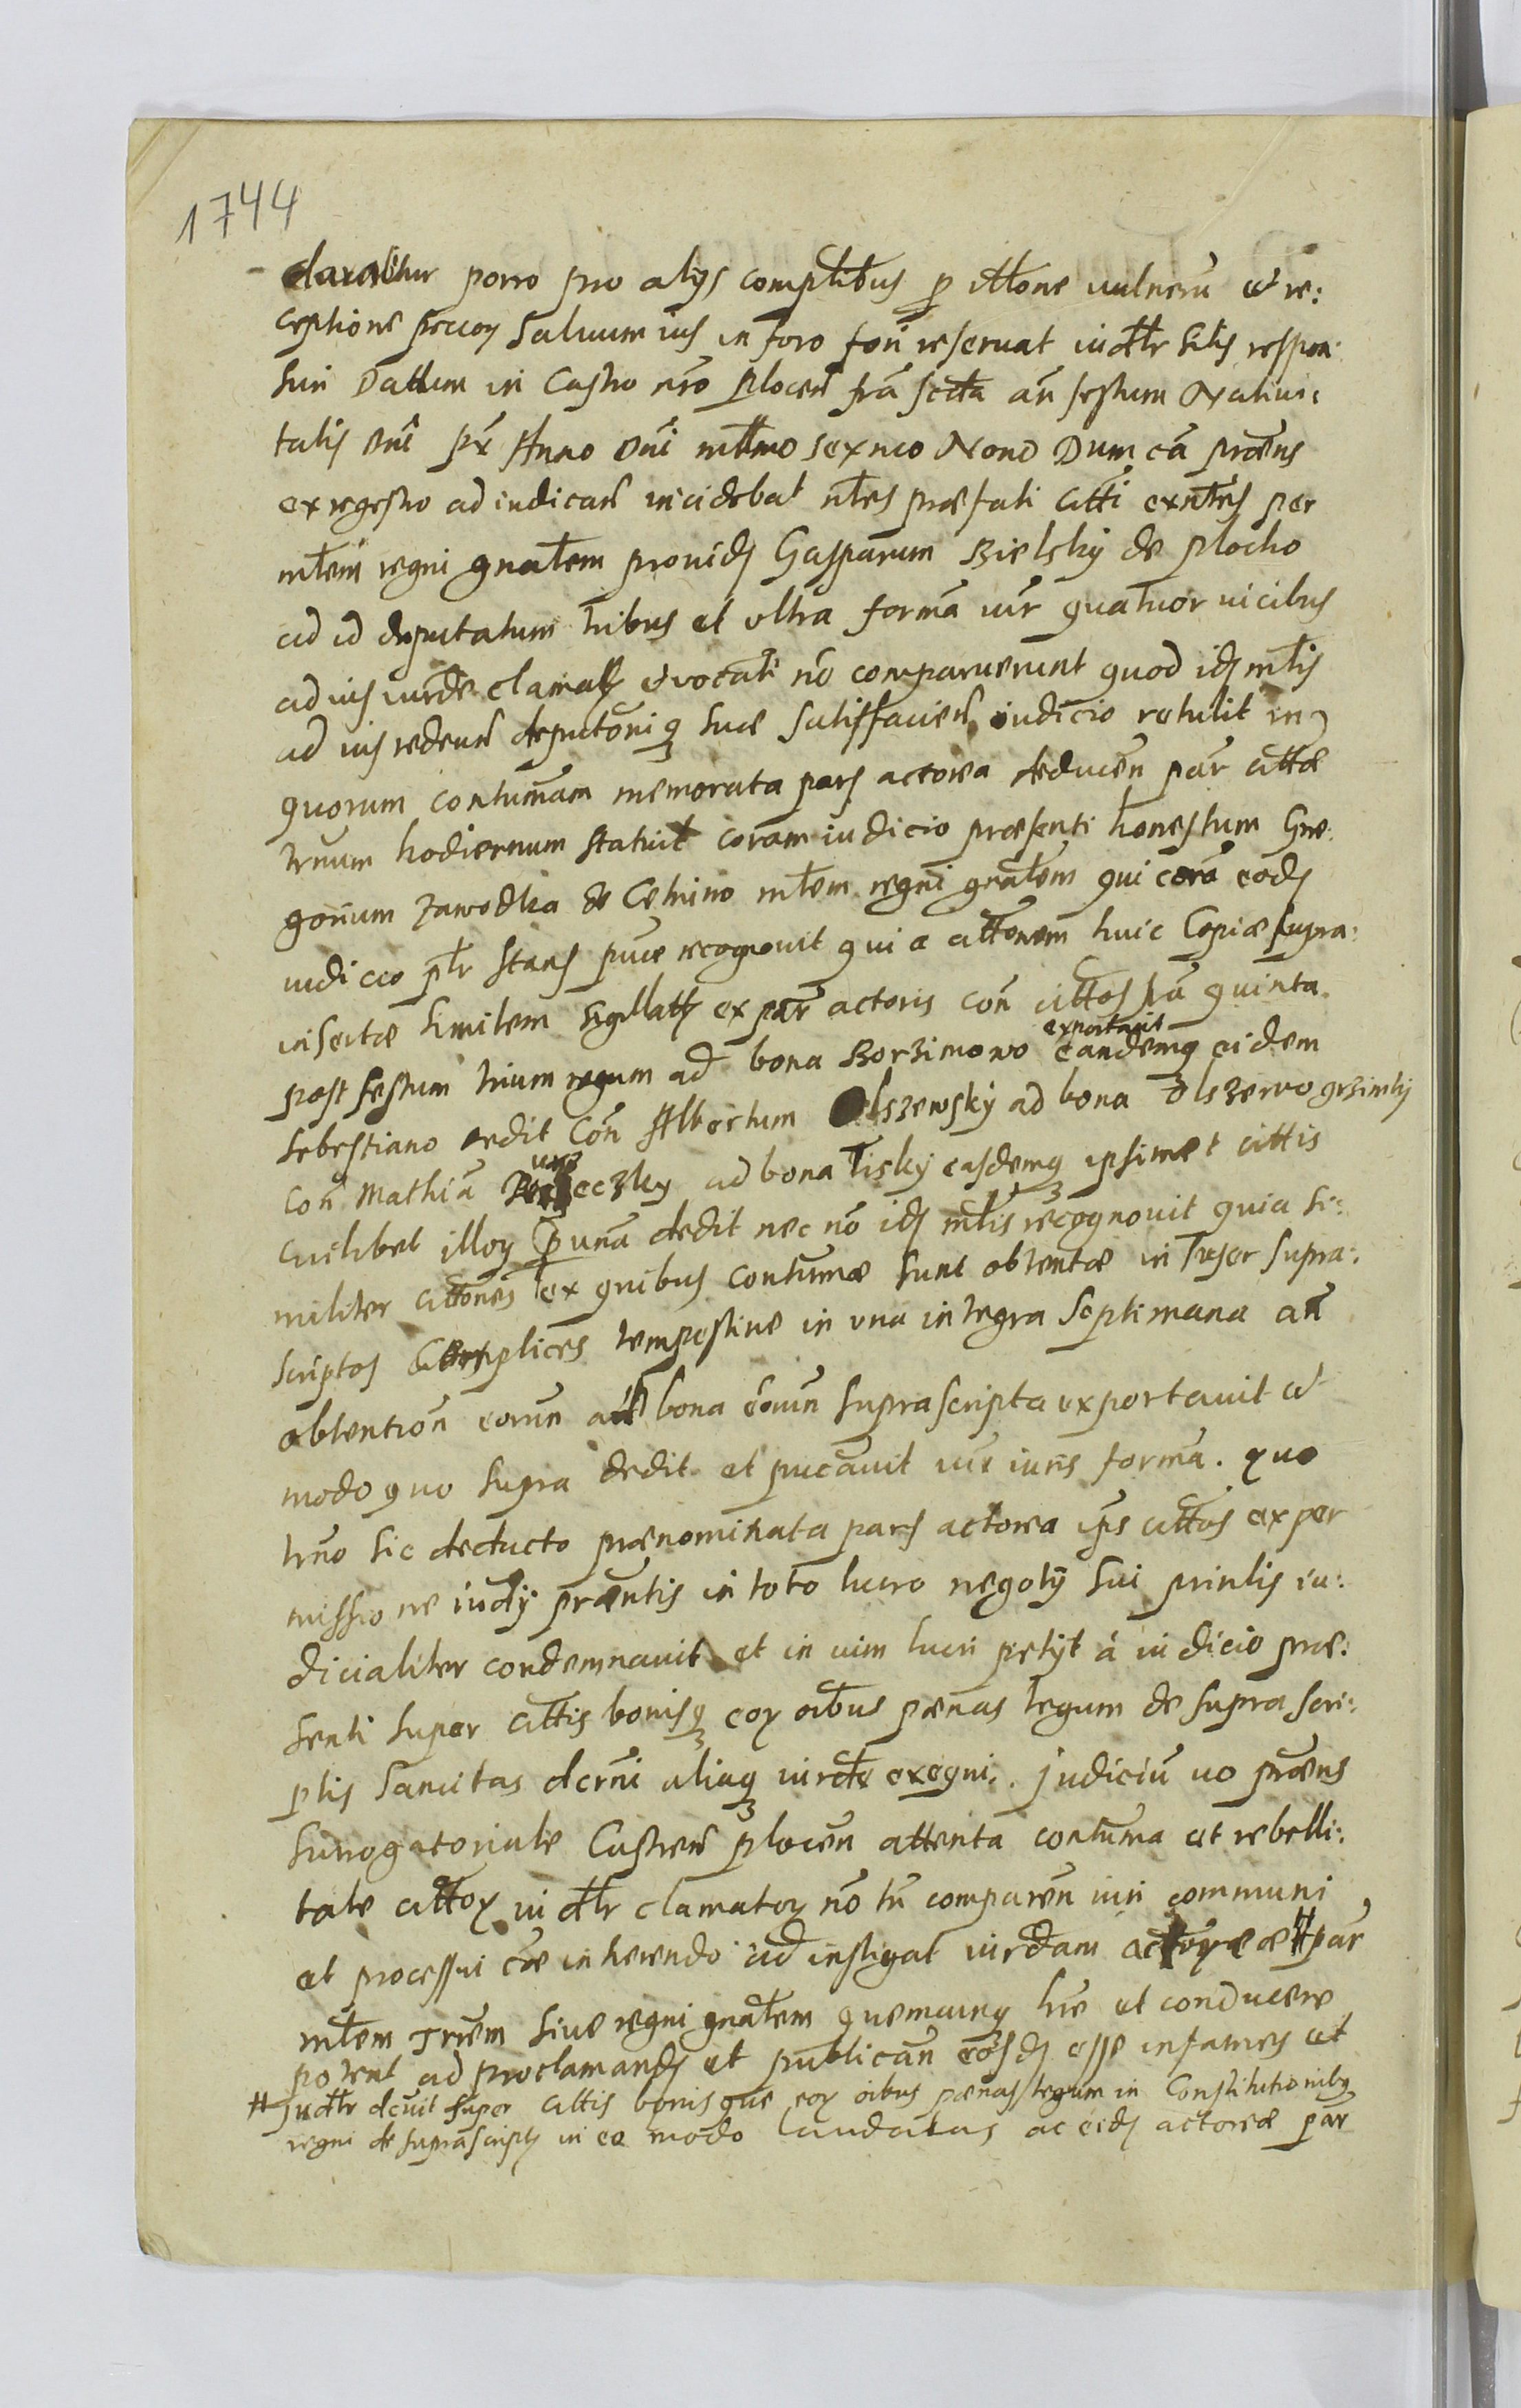 1744
porro pro alys complibus p ittone vulnerũ et re:
ceptione saluum ius in foro fori reseruat iudtlr sitis respon:
suri Datum in Castro nro plocen fra sexta an festum Natiui:
talis Dni px Anno Dni mllmo sexmo Nono Dum cã prœns
ex regestro ad iudican incidebat mles præfati citti exntes per
mlem regni gnalem prouid Gasparum Bielsky de plocko
ad id deputatum tribus et ultra formã iur quatuor uicibus
ad ius iurde clamati et vocati nõ comparuerunt quod id mlis
ad ius redeun deputoniq suæ satisfacien iudicio retulit in
quorum contumam memorata pars actorea deducen par cittæ
trnum hodiernum statuit coram iudicio præsenti honestum Gre:
gorium zawodka de Cetnino mlem regni gnalem qui corã eod
iudicio plr stans puce recognouit quia cittonem huic Copiæ supra:
insertæ similem sigillat ex par actoris con cittos frã quinta
post festum trium regum ad bona Borzimowo exportauit eandemq eidem
Sebestiano dedit Con Albertum Olszewsky ad bona Olszewo grzimki
Con Mathiã eczky ad bona Lisky easdemq ipsimet cittis
cuilibet illoꝝ p unã dedit nec nõ id mlis recognouit quia si:
militer cittones ex quibus contumæ sunt obtentæ in supra:
scriptos Complices tempestiue in una integra septimana an
obtention eorum ad bona eorum suprascripta exportauit et
modo quo supra dedit et pucauit iux iuris formã. quo
trno sic deducto prænominata pars actorea ips cittos ex per
missione iudy præntis in toto lucro negoty sui prinlis iu:
dicialiter condemnauit et in uim lucri petyt á iudicio præ:
senti super cittis bonisq eoꝝ oibus pœnas legum de supra scri:
ptis sancitas dcrni aliaq iurdte exegni. judiciũ uo præns
surrogatoriale Castren plocen attenta contuma et rebelli:
tate cittoꝝ iudtlr clamatoꝝ nõ tn comparen iuri communi
et processui cæ inherendo ad instigat iurdam actoreæ # par
mlem Trrem siue regni gnalem quemcunq hre et conducere
poterit ad proclamand et publican eosd esse infames et
# Judtlr dcuit super cittis bonis que eoꝝ oibus pœnas legum in Constitutionibꝫ
regni de suprascript in eo modo laudatas ac eid actoreæ par